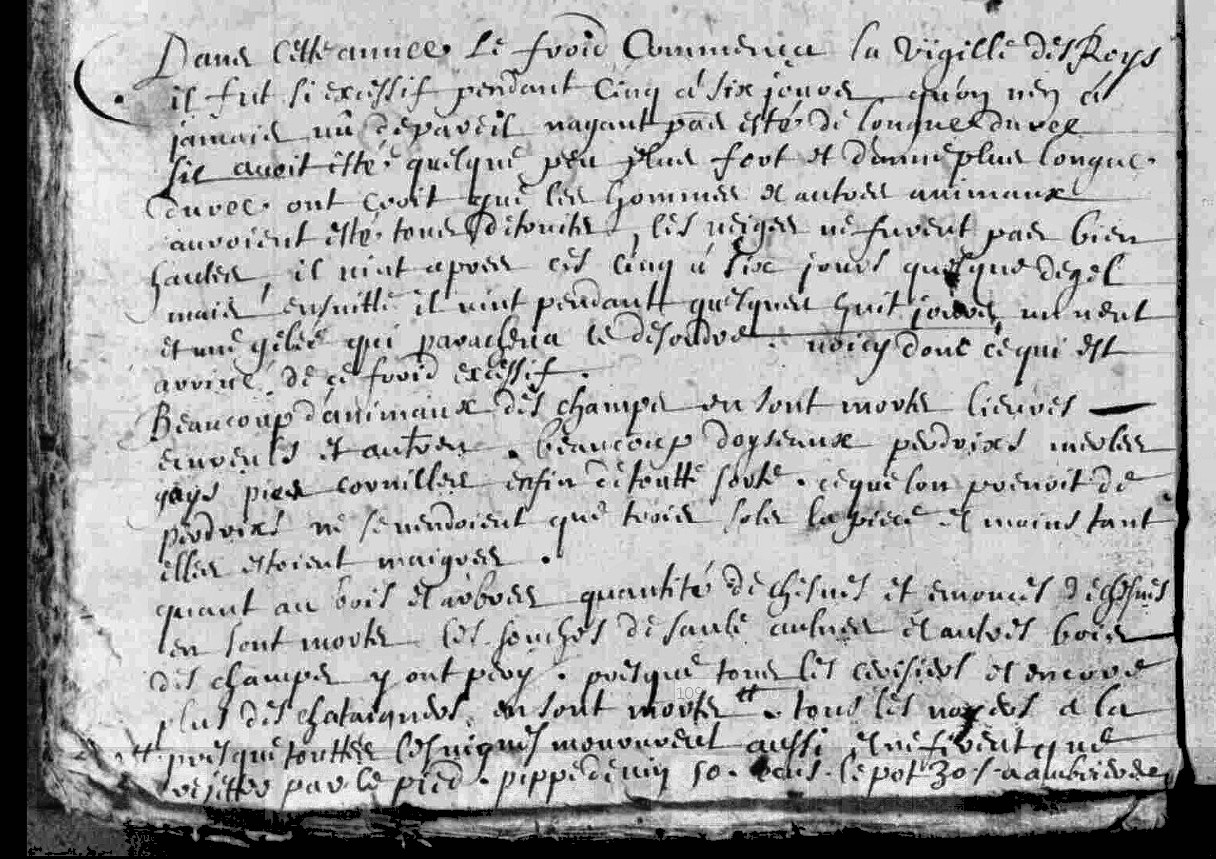 Dans cette annee le froid commença la vigille des Roys
il fut si excessif pendant cinq a six jours qu'on n'en a
jamais vû de pareil nayant pas esté de longue duree
sil avoit esté quelque peu plus fort et d'une plus longue
duree ont croit que les hommes et autres animaux
auroient esté tous détruits, les neiges ne furent pas bien
hautes, il vint apres ces cinq a six jours quelque degel
mais ensuitte il vint pendant quelques huit jours un vent
et une gelée qui paracheva le desordre. voicy donc ce qui est
arrivé de ce froid excessif.
Beaucoup d'animaux des champs en sont morts lievres
et autres. beaucoup doyseaux perdrixs merles
gays pies cornilles enfin de toutte sorte. ce que lon prenoit de
perdrixs ne se vendoient que trois sols la piece et moins tant
elles estoient maigres.
quant au bois et arbres quantité de chesnes et de chesnes
en sont morts les souches de saule aulnes et autres bois
des champs y ont pery. presque tous les cerisiers et encore
plus des chataigners en sont morts #. tous les noyers a la
# presque touttes les vignes moururent aussi et ne firent que
rejetter par le pied. pippe de vin 50 le pot 30 s. a ambrieres